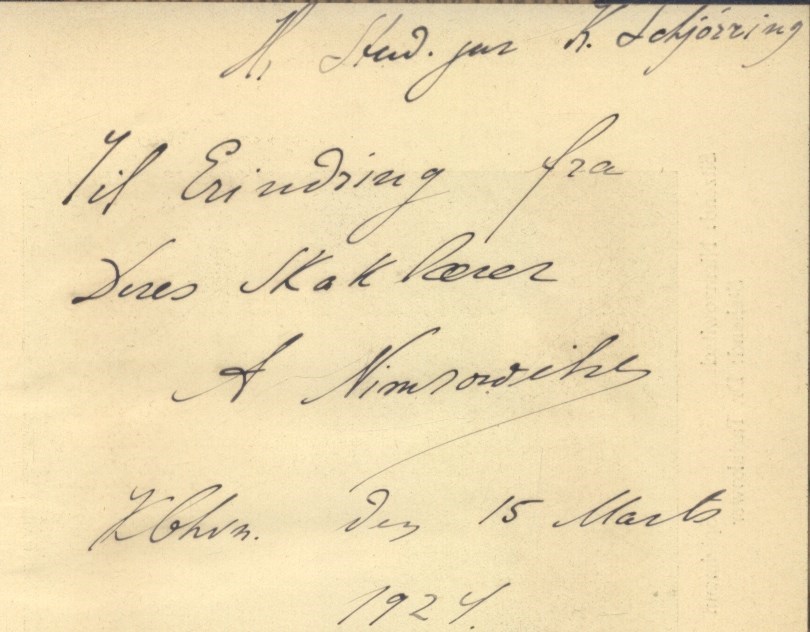 Hr Stud. jur K. Schjörring
Til Erindring fra
Deres Skaklærer
A Nimzowitsch
Kbhvn. den 15 Marts
1924.